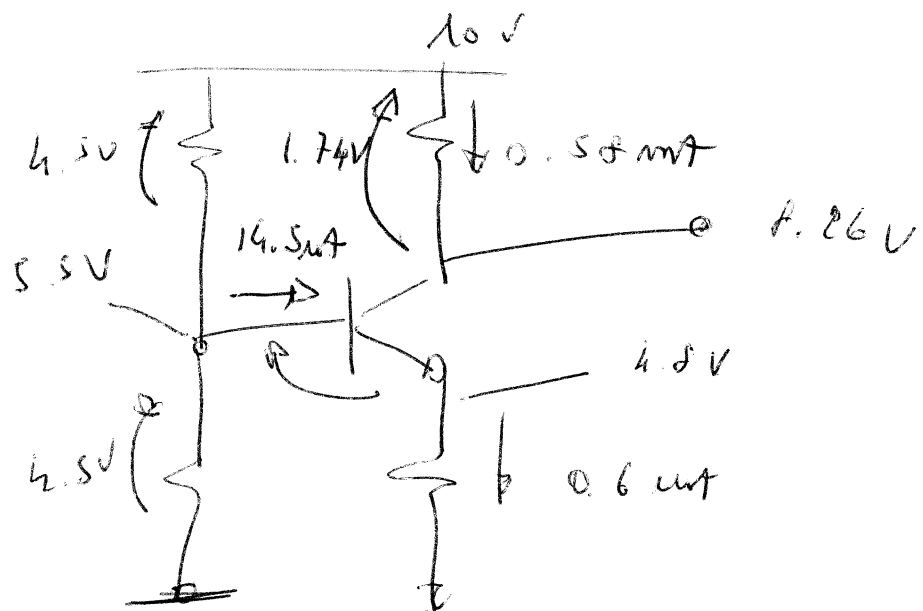 10 V
4.5V
1.74V
0.58 mA
14.5µA
8.26 V
5.5V
4.8V
4.5V
0.6 mA